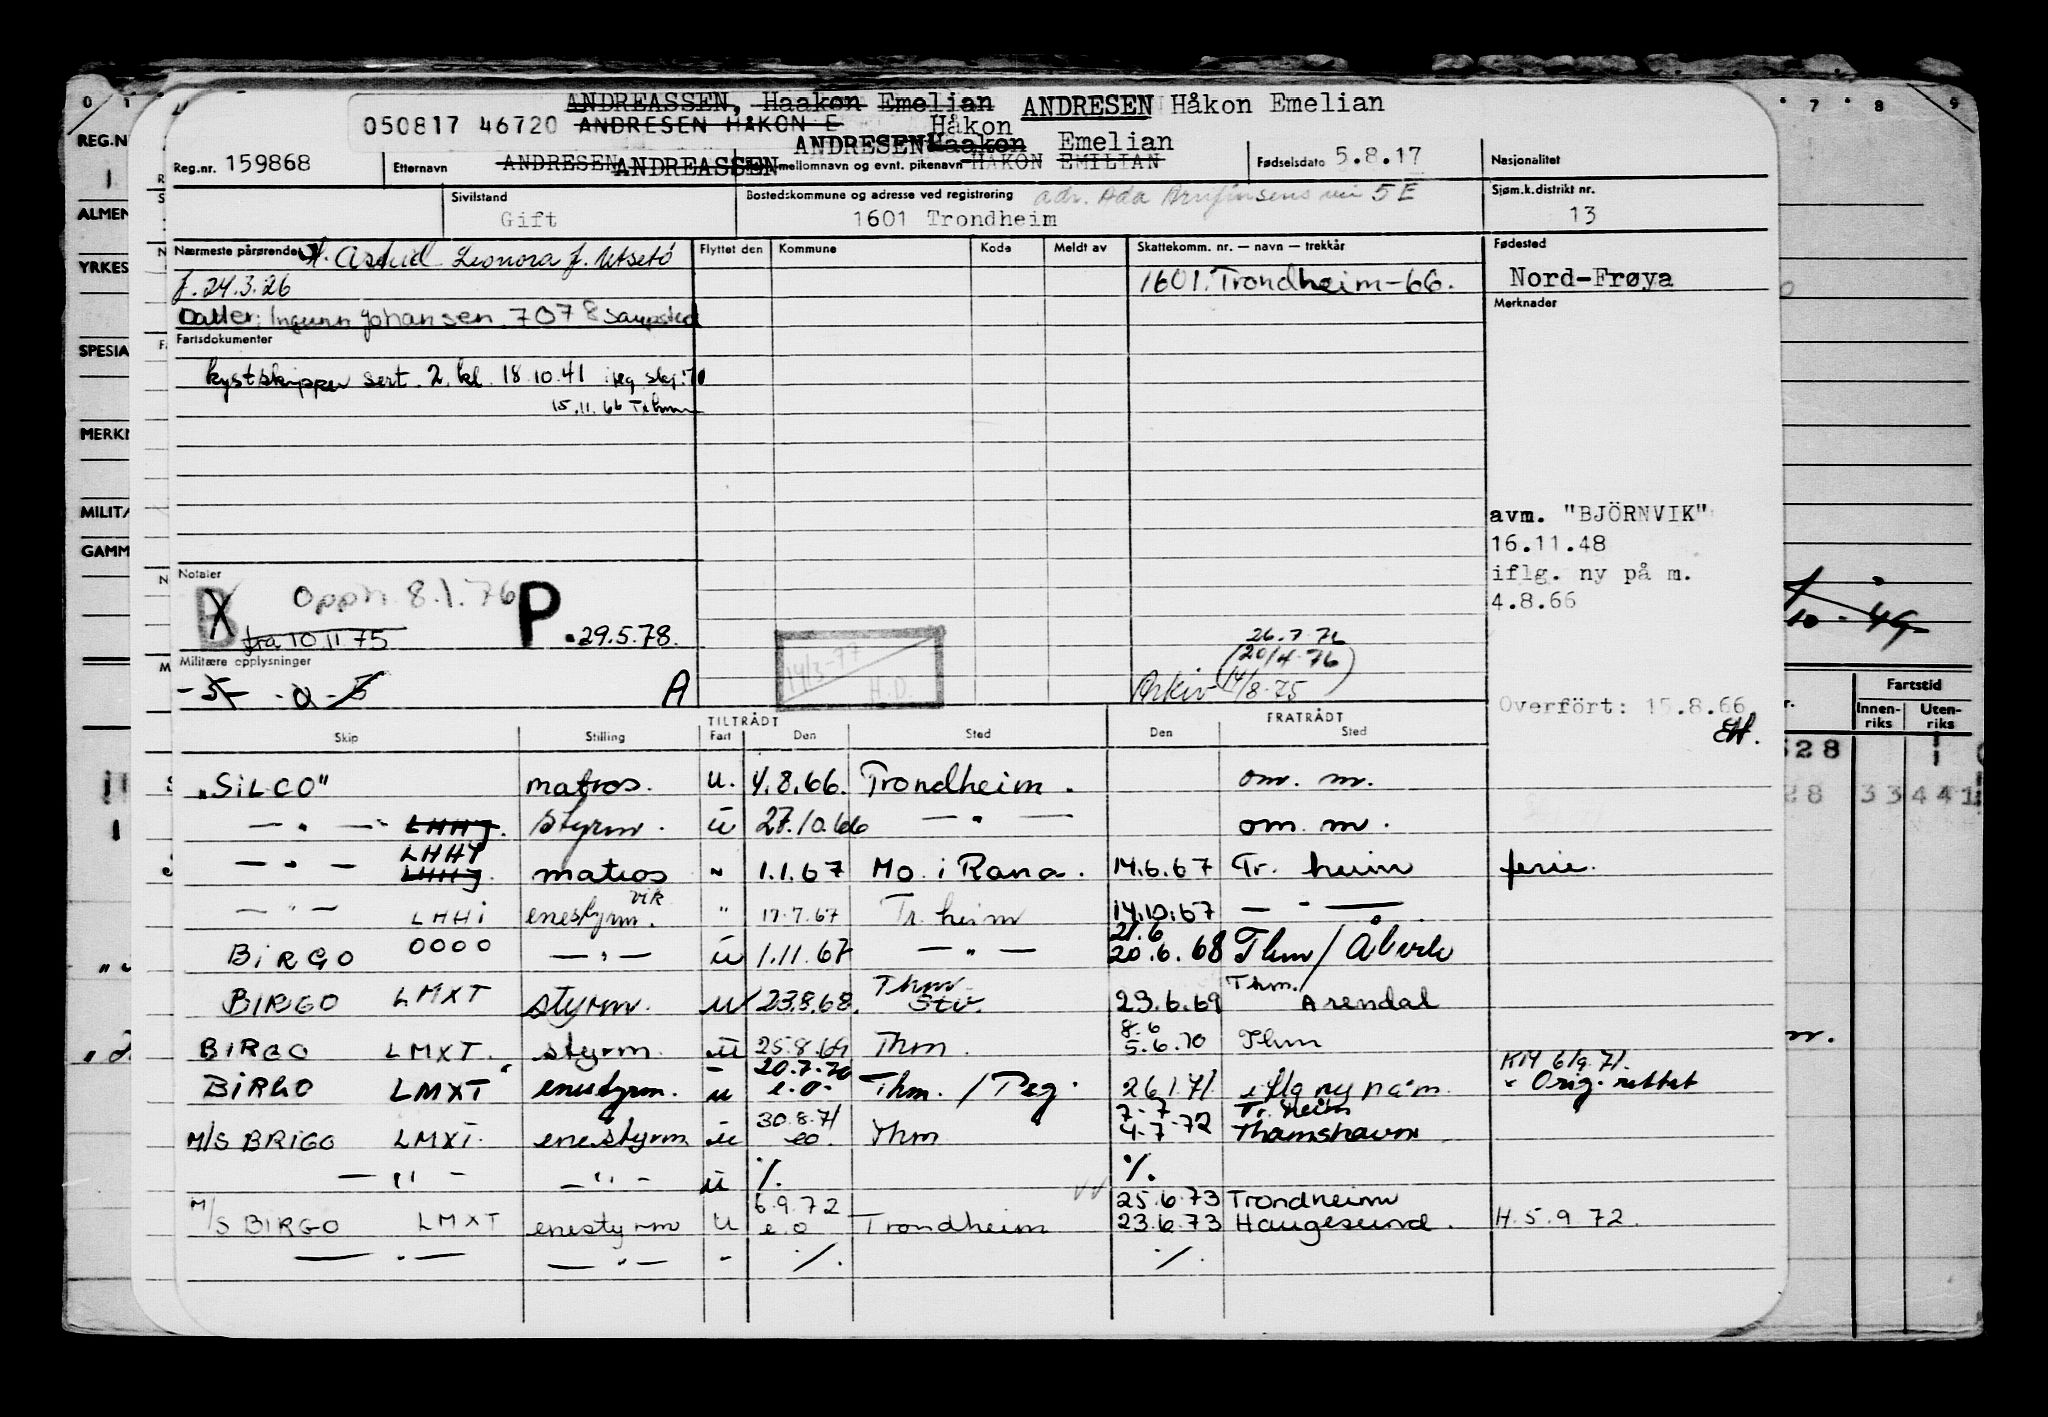 ANDREASSEN, Haakon Emelian ANDRESEN Håkon Emelian
050817 46720 ANDRESEN HÅKON E Håkon
ANDRESEN Haakon Emelian
Reg.nr. 159868 Etternavn ANDRESEN ANDREASSEN mellomnavn og evnt. pikenavn HÅKON EMILIAN Fødselsdato 5.8.17 Nasjonalitet
Sivilstand Gift
Bostedskommune og adresse ved registrering adr. Ada Arnfinsens vei 5 E
1601 Trondheim
Sjøm.k.distrikt nr. 13
Nærmeste pårørende H. Astrid Leonora f. Utsetø
f. 24.3.26
Datter: Ingunn Johansen, 7078 Saupstad
Flyttet den Kommune Kode Meldt av
Skattekomm. nr. — navn — trekkår
1601. Trondheim-66.
Fødested
Nord-Frøya
Merknader
Fartsdokumenter
kystskipper sert. 2. kl. 18.10.41
15.11.66
avm. "BJÖRNVIK"
16.11.48
iflg. ny på m.
4.8.66
Notater
B Opph. 8.1.76 P. 29.5.78.
fra 10.11.75
14/3-77
H.D.
Arkiv 26.7.76
(20/4.76)
14/8.75
Militære opplysninger
A
Overfört: 15.8.66
EH.
TILTRÅDT FRATRÅDT
Skip Stilling Fart Den Sted Den Sted
"SILCO" matros. u. 4.8.66. Trondheim. om. m.
— " — LHHJ. styrm. u 27.10.66 — " — om. m.
— " — LHHI LHHJ. matros " 1.1.67 Mo i Rana. 14.6.67 Tr. heim ferie.
— " — LHHI enestyrm. vik " 17.7.67 Tr. heim 14.10.67 — " —
BIRGO OOOO — " — u 1.11.67 — " — 21.6 20.6.68 Thm/
BIRGO LMXT styrm. u 23.8.68. Thm. 23.6.69 Thm./ Arendal
BIRGO LMXT. styrm. u 25.8.69 Thm. 8.6 5.6.70 Thm
BIRGO LMXT enestyrm. u 20.7.70 e.o. Thm. / Peg. 26.1.71. iflg ny på m. KM 6/9.71. Orig. rettet
M/S BRIGO LMXT. enestyrm u 30.8.71 eo. Thm 7-7 4-7-72 Tr. heim Thamshavn
— " — — " — u %. %.
M/S BIRGO LMXT enestyrm u 6.9.72 e.o Trondheim 25.6.73 Trondheim
23.6.73 Haugesund. H. 5.9.72.
— " — — " — - %. %.
REG.N
ALMEN
YRKES
SPESIA
MERKN
MILITÆ
GAMM
7 8 9
Fartstid
Innen-riks Uten-riks
28
28 33 441